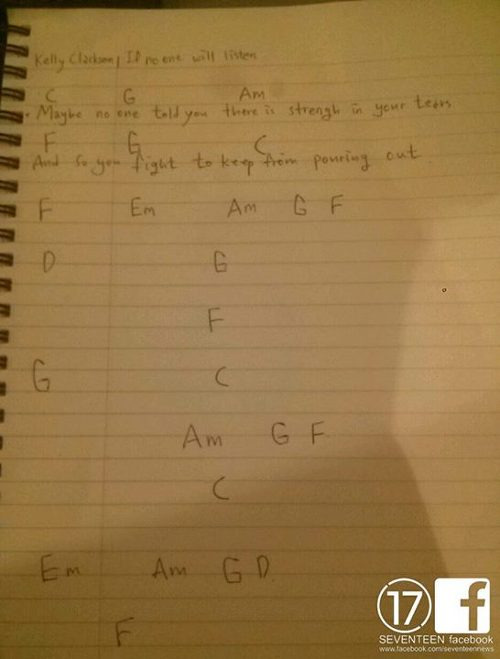 Kelly Clarkson, If no one will listen
C G Am
Maybe no one told you there is strengh in your tears
F G C
And so you fight to keep from pouring out
F Em Am G F
D G
F
G C
Am G F
C
Em Am G D
F
17 f
SEVENTEEN facebook
www.facebook.com/seventeennews